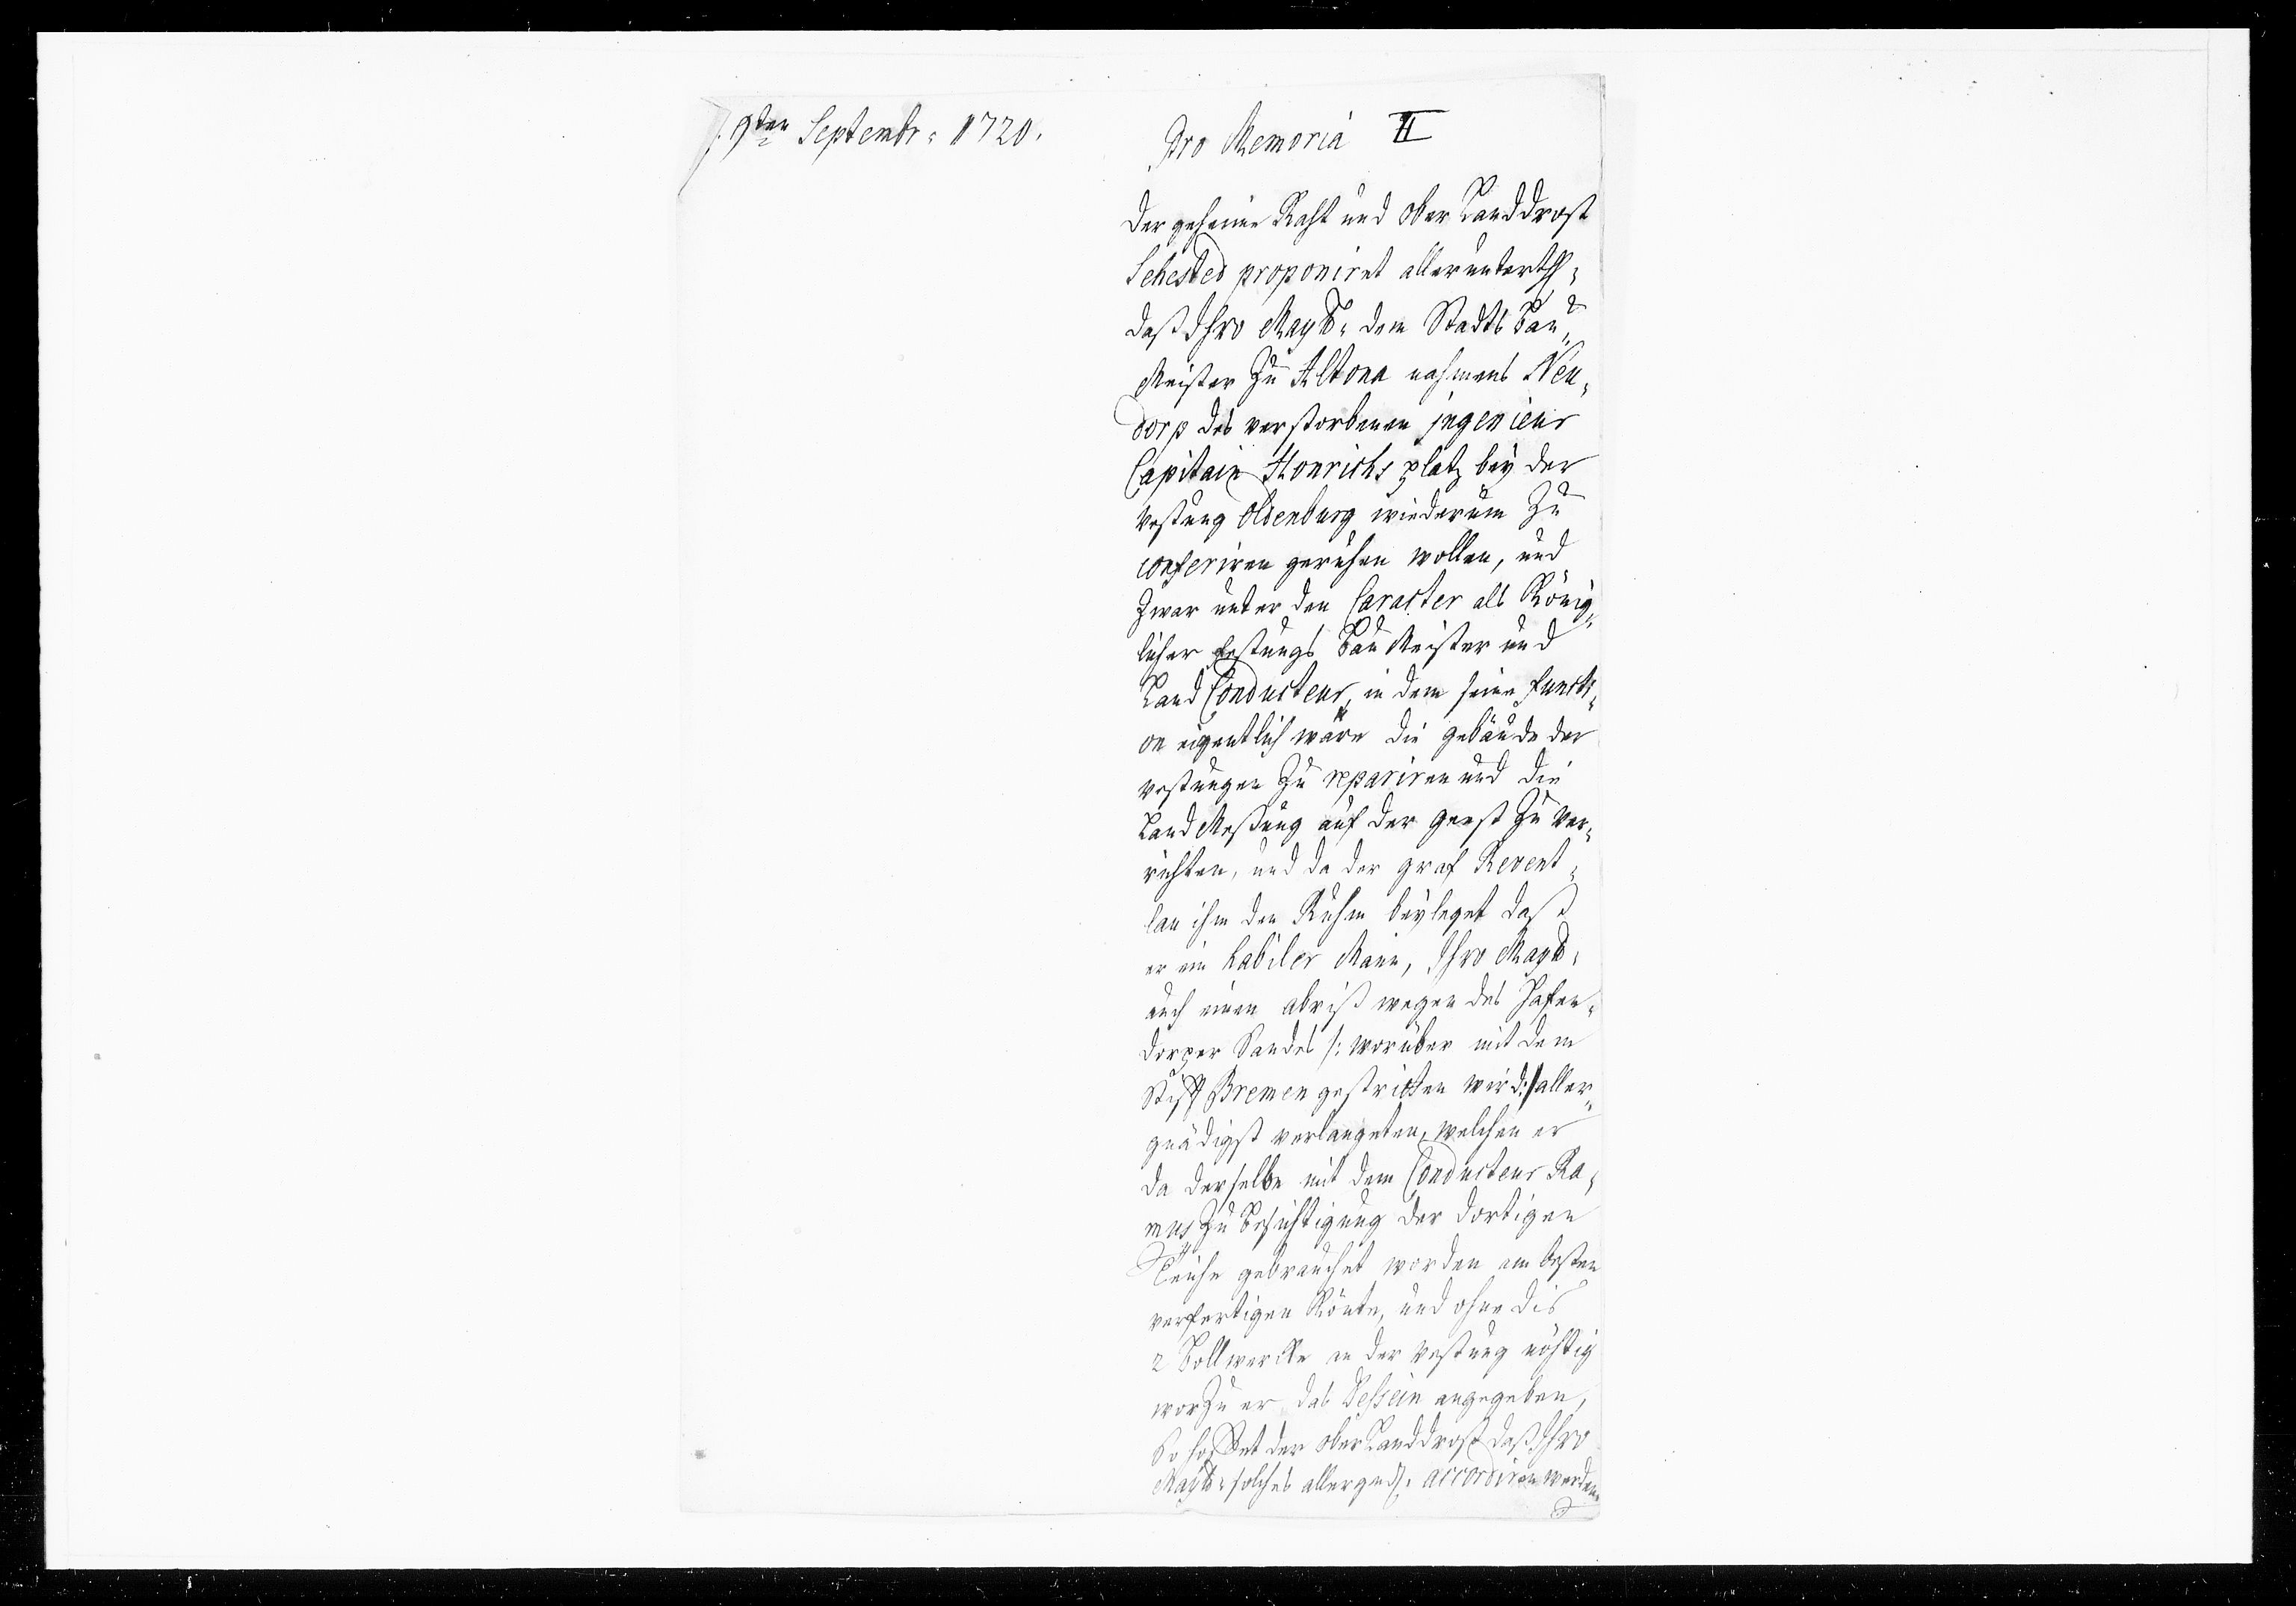 9ten Septembr: 1720.
Pro Memoria II
Der geheime Raht und Ober Landdrost
Sehested proponiret allerunterth:
daß Ihro Mayt: dem Stadts Bau¬
Meister zu Altona nahmens Neu¬
dorp des verstorbenen jngenieur
Capitain Honrichs platz bey der
vestung Oldenburg wiederum zu
conferiren geruhen wollen, und
zwar unter den Caracter als König¬
licher festungs Bau Meister und
Land Conducteur, in dem seine functi¬
on eigentlich wäre die gebäude der
vestungen zu repariren und die
Land Meßung auf der geest zu ver¬
richten, und da der graf Revent¬
lau ihm den Ruhm beyleget daß
er ein habiler Mann, Ihro Mayt:
auch einen abriß wegen des Hafen¬
dorper Sandes /: worüber mit dem
Stifft Bremen gestritten wird :/ aller¬
gnädigst verlangeten, welchen er
da derselbe mit dem Conducteur Ra¬
mus zu Besichtigung der dortigen
Teiche gebrauchet worden am besten
verfertigen könte, und ohne dis
2 Bollwercke an der vestung nöhtig
worzu er das Dessein angegeben,
So hoffet der Ober Landdrost daß Ihro
Mayt: solches allergndst. accordiren werden